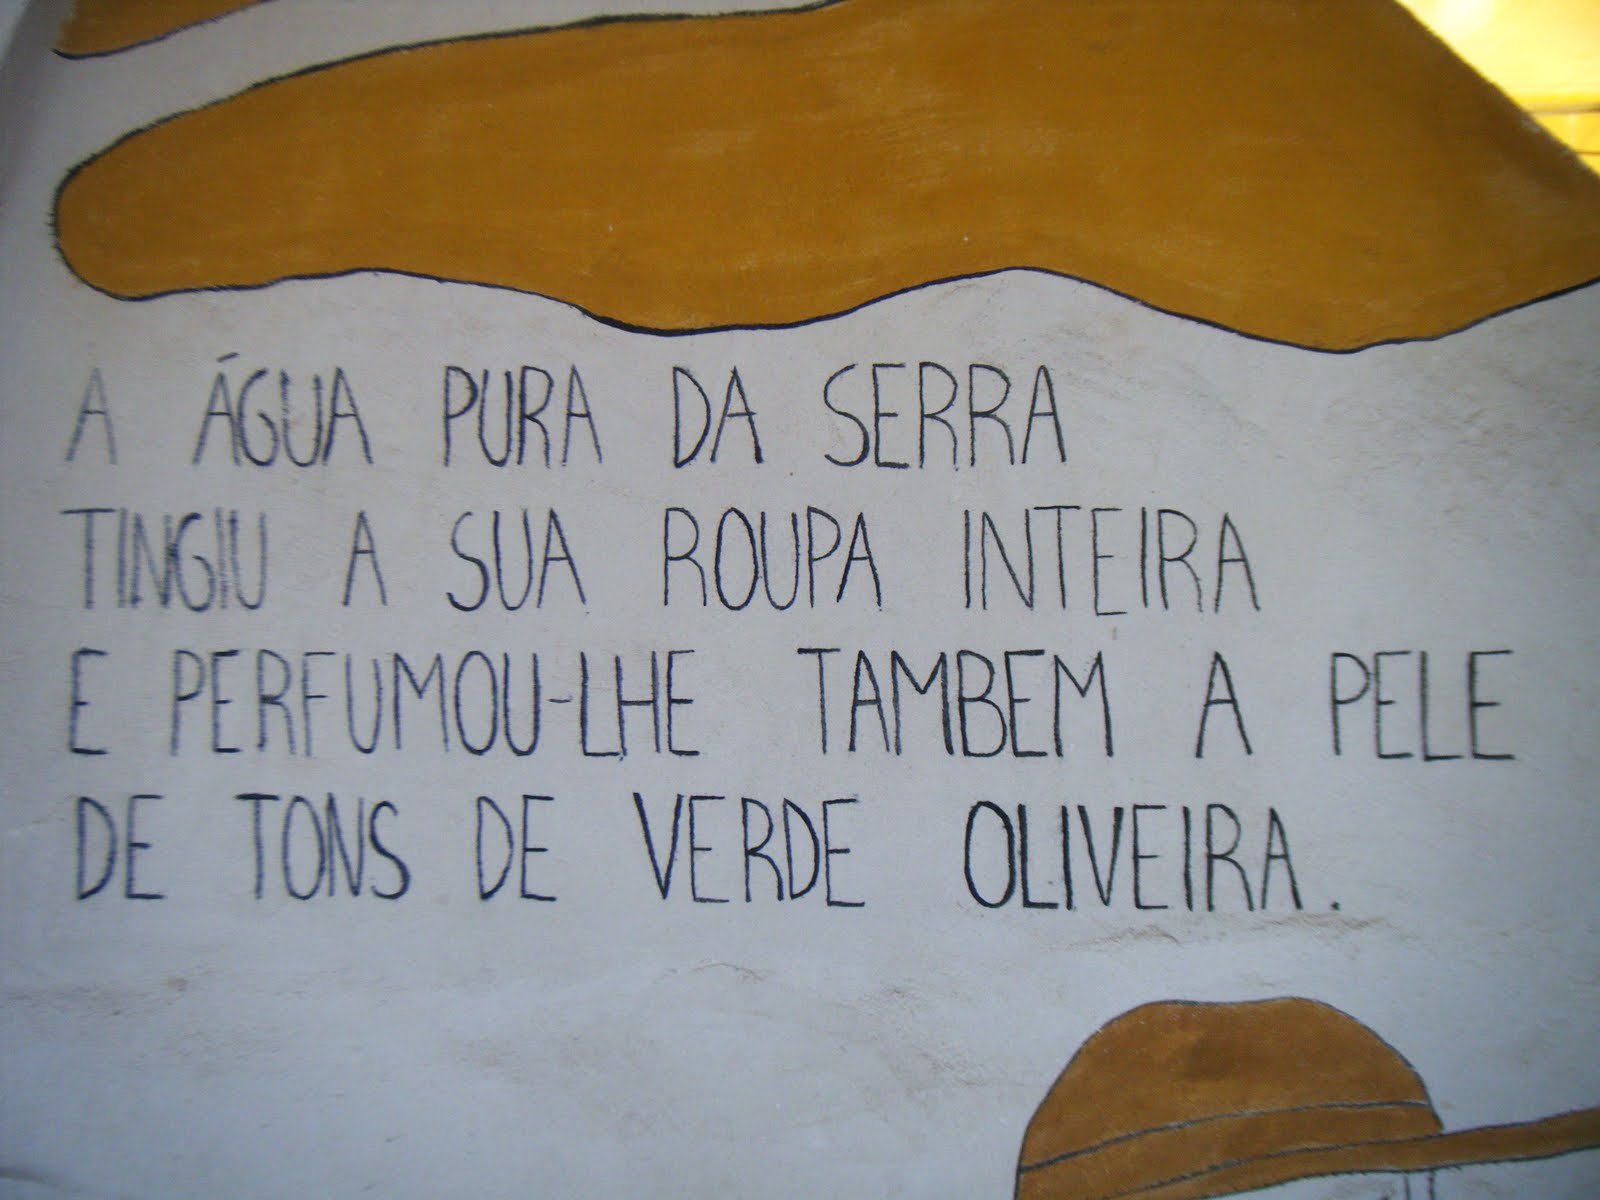 A ÁGUA PURA DA SERRA
TINGIU A SUA ROUPA INTEIRA
E PERFUMOU-LHE TAMBEM A PELE
DE TONS DE VERDE OLIVEIRA.